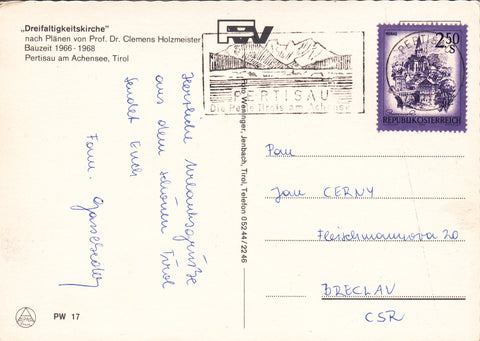 „Dreifaltigkeitskirche"
nach Plänen von Prof. Dr. Clemens Holzmeister
Bauzeit 1966-1968
Pertisau am Achensee, Tirol
Herzliche Urlaubsgrüße
aus dem schönen Tirol
sendet Euch
Fam.
PW 17
Foto Weninger, Jenbach, Tirol, Telefon 05244/2246
PERTISAU
Die Perle Tirols am Achensee
2.50
S
REPUBLIK ÖSTERREICH
Pan
Jan CERNY
Fleischmanova 20
BRECLAV
CSR